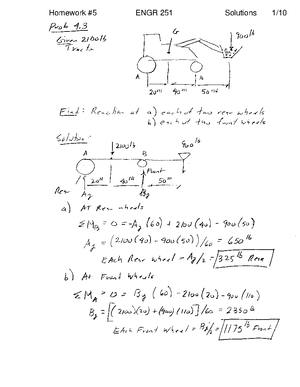 Homework #5 ENGR 251 Solutions 1/10
Prob 4.3
Given 2100 lb
Tractor
G
900 lb
A B
20in 40in 50in
Find: Reaction at a) each of two rear wheels
b) each of two front wheels
Solution:
A 2100 lb B 900 lb
20in 40in 50in
Front
Rear Ay By
a) At Rear wheels
ΣMB = 0 = -Ay (60) + 2100 (40) - 900 (50)
Ay = (2100 (40) - 900 (50))/60 = 650 lb
Each Rear wheel = Ay/2 = 325 lb Rear
b) At Front Wheels
ΣMA = 0 = By (60) - 2100 (20) - 900 (110)
By = [(2100)(20) + (900)(110)]/60 = 2350 lb
Each Front Wheel = By/2 = 1175 lb Front